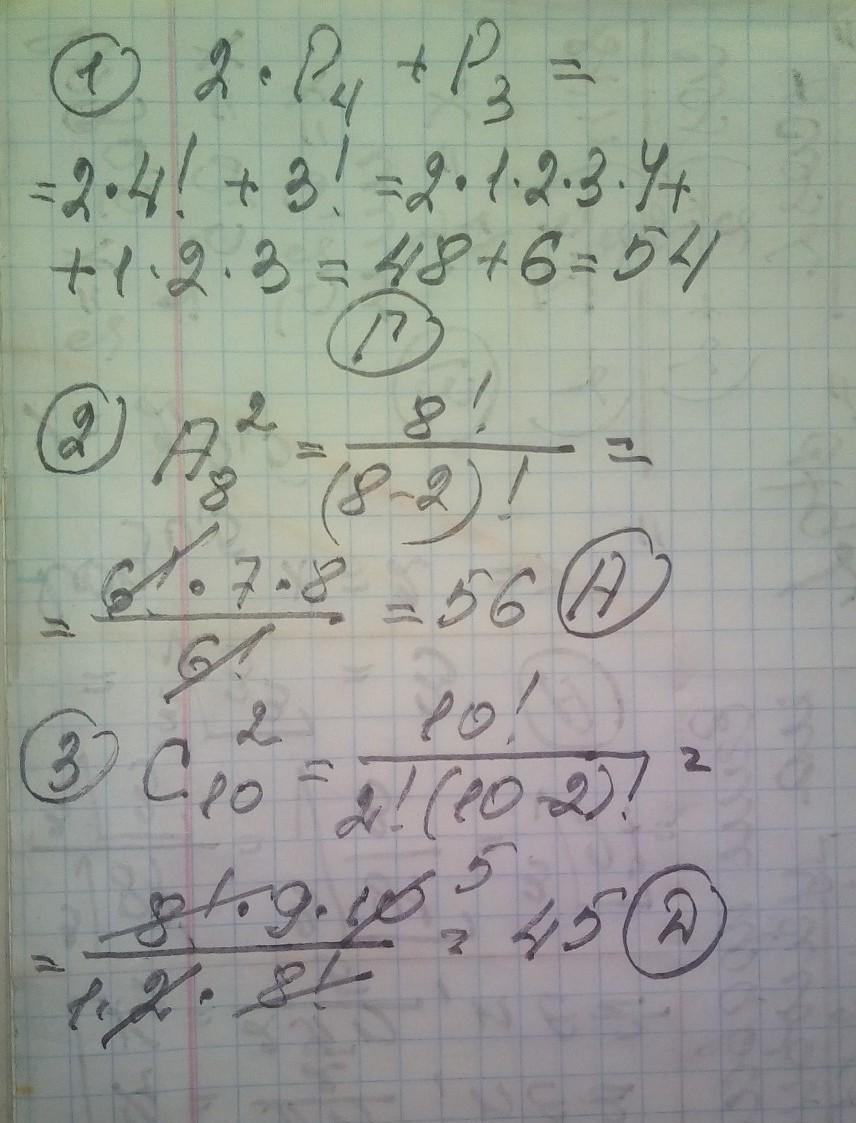 ① 2 · P₄ + P₃ =
= 2 · 4! + 3! = 2 · 1 · 2 · 3 · 4 +
+ 1 · 2 · 3 = 48 + 6 = 54
Г
② A₈² = 8! / (8-2)! =
= 6! · 7 · 8 / 6! = 56 А
③ C₁₀² = 10! / 2!(10-2)! =
= 8! · 9 · 10 5 / 1 · 2 · 8! = 45 Д